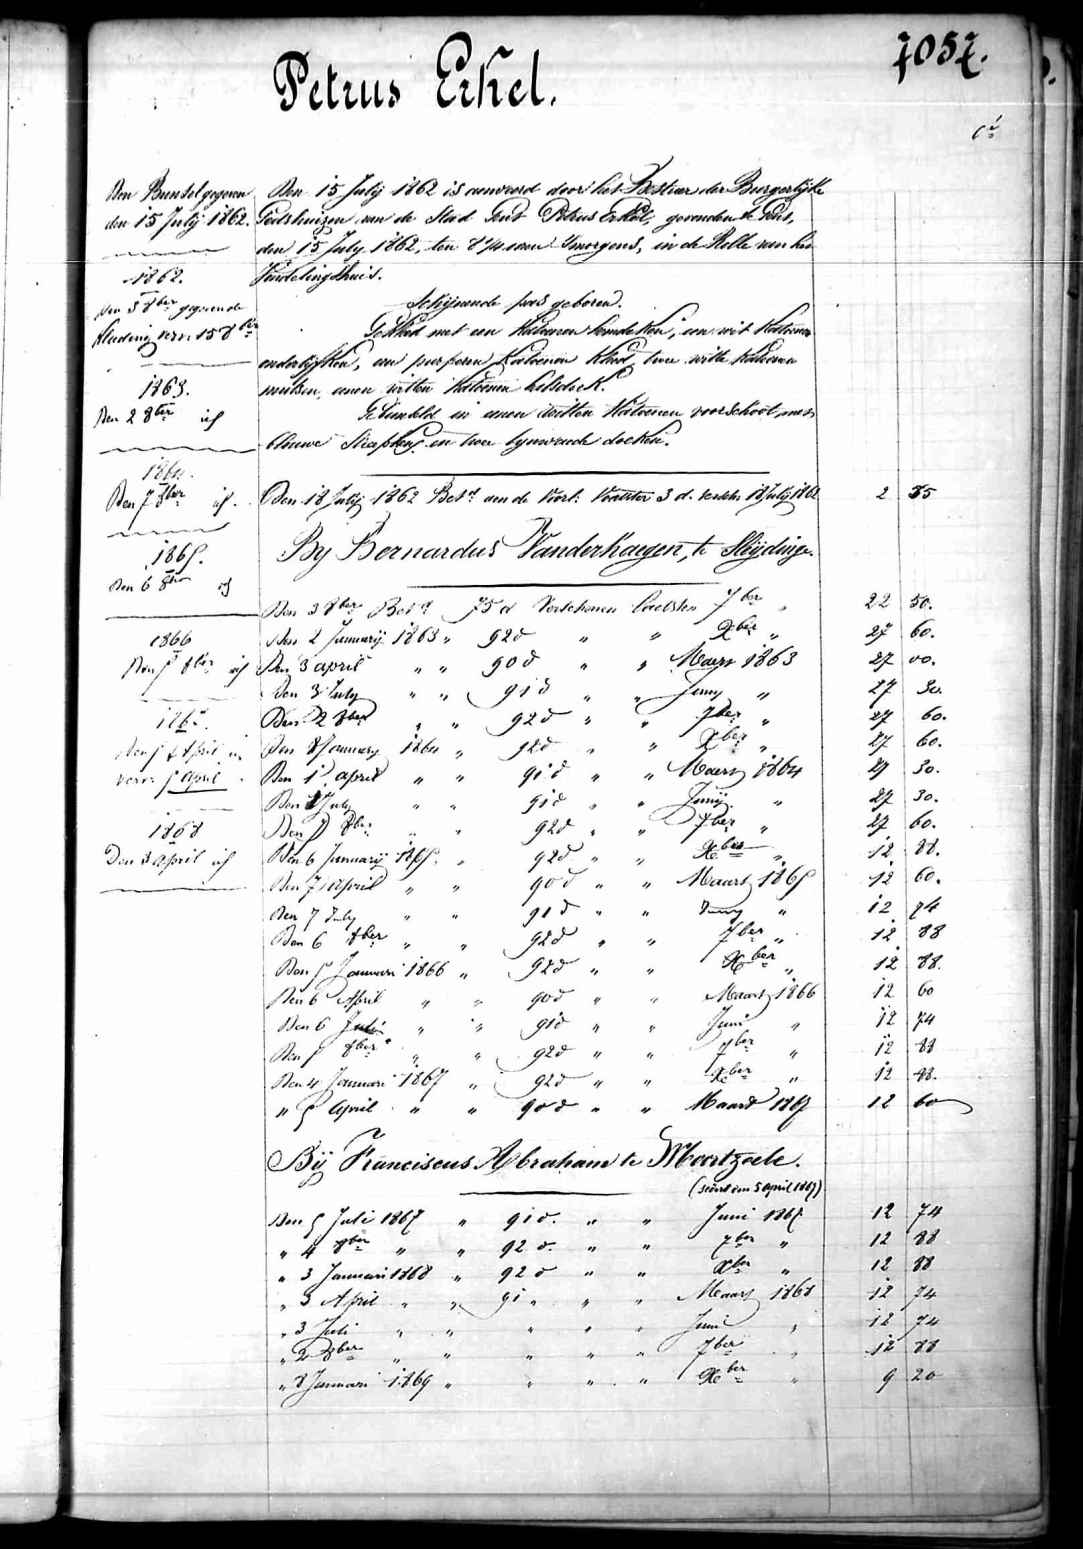 7057.
Petrus Erkel.
Den Bundel gegeven
den 15 July 1862.
1862.
den 3 8ber gegevende
kleeding verv: 15 8ber
1863.
Den 2 8ber id
1864.
Den 7 8ber id.
1865.
Den 6 8ber id
1866
Den 5 8ber id
1867.
Den 5 April id
verv: 5 April
1868
Den 3 April id
Den 15 July 1862 is aanveerd door het Bestuur der Burgerlijke
Godshuizen van de Stad Gent Petrus Erkel, gevonden te Gent,
den 15 July 1862, ten 8 1/4 uren 's morgens, in de Rolle van het
Vondelingshuis.
Schijnende pas geboren.
Gekleed met een Katoenen hemdeken, een wit Katoenen
onderlyfken, een purperen Katoenen Kleed, twee witte Katoenen
mutsen, eenen witten Katoenen halsdoek.
Gebundeld in eenen witten Katoenen voorschoot, met
blauwe Streepkens en twee lynwaede doeken.
Den 18 July 1862 Bet.d aen de Voorl: 3 d. 18 July 1862 2 85
By Bernardus Vanderhaegen, te Sleydinge.
Den 3 8ber Bet.d 75 d Verschenen 7ber " 22 50.
Den 2 January 1863 " 92 d " " Xber " 27 60.
Den 3 april " " 90 d " " Maert 1863 27 00.
Den 3 July " " 91 d " " Juny " 27 30.
Den 2 8ber " " 92 d " " 7ber " 27 60.
Den 8 January 1864 " 92 d " " Xber " 27 60.
Den 1 april " " 91 d " " Maert 1864 27 30.
Den July " " 91 d " " Junij " 27 30.
Den 7 8ber " " 92 d " " 7ber " 27 60.
Den 6 Januarij 1865. " 92 d " " Xber " 12 88.
Den 7 April " " 90 d " " Maart 1865 12 60.
Den 7 July " " 91 d " " Juny " 12 74
Den 6 8ber " " 92 d " " 7ber " 12 88
Den 5 Januari 1866 " 92 d " " Xber " 12 88.
Den 6 April " " 90 d " " Maart 1866 12 60
Den 6 Juli " " 91 d " " Juni " 12 74
Den 5 8ber " " 92 d " " 7ber " 12 88
Den 4 Januari 1867 " 92 d " " Xber " 12 88.
" 5 April " " 90 d " " Maart 1867 12 60
Bij Franciscus Abraham te Moortzeele.
(sedert den 5 april 1867)
Den 5 Juli 1867 " 91 d. " " Juni 1867 12 74
" 4 8ber " " 92 d. " " 7ber " 12 88
" 3 Januari 1868 " 92 d " " Xber " 12 88
" 3 April " " 91 " " " Maart 1868 12 74
" 3 Juli " " " " " Juni " 12 74
" 2 8ber " " " " " 7ber " 12 88
" 8 Januari 1869 " " " " Xber " 9 20